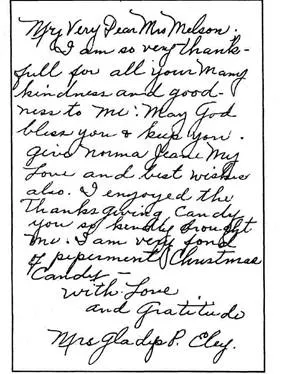 My Very Dear Mrs Melson.
I am so very thank-
full for all your Many
kindness and good-
ness to me. May God
bless you & keep you.
give Norma Jeane My
Love and best wishes
also. I enjoyed the
Thanksgiving Candy
you so kindly brought
me. I am very fond
of piperment Christmas
Candy —
with Love
and Gratitude
Mrs Gladys P. Eley.